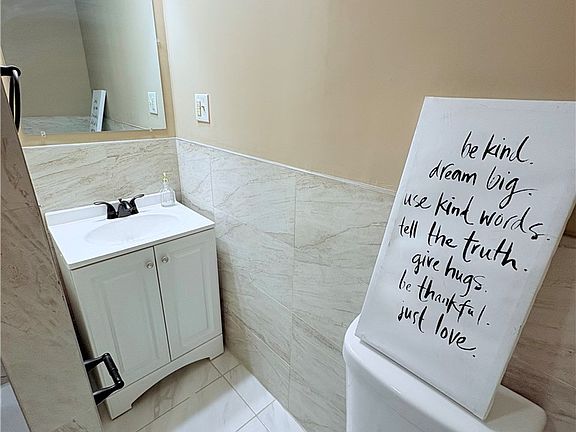 be kind.
dream big.
use kind words.
tell the truth.
give hugs.
be thankful.
just love.